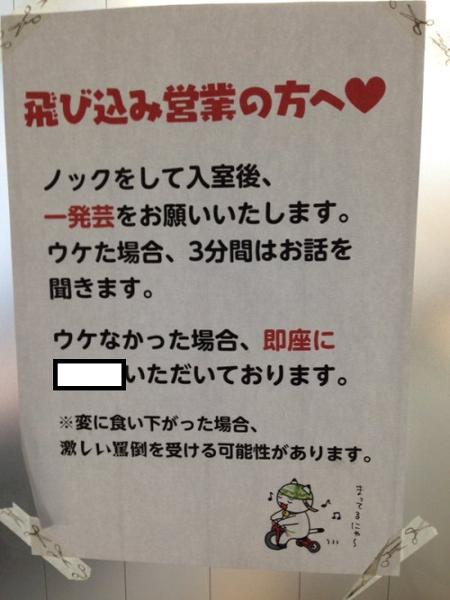 飛び込み営業の方へ♥
ノックをして入室後、
一発芸をお願いいたします。
ウケた場合、3分間はお話を
聞きます。
ウケなかった場合、即座に
いただいております。
※変に食い下がった場合、
激しい罵倒を受ける可能性があります。
まってるにゃ〜